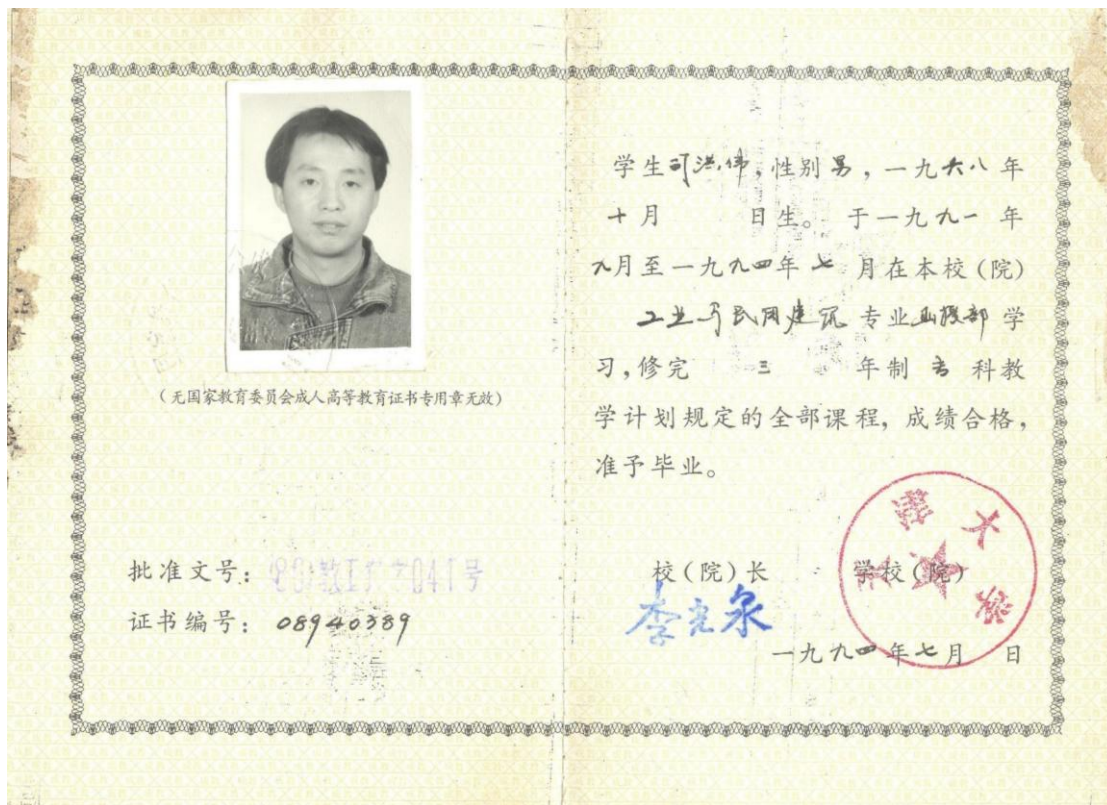 (无国家教育委员会成人高等教育证书专用章无效)
批准文号:
证书编号: 08940389
学生 洪伟,性别男,一九六八年
十月 日生。于一九九一年
九月至一九九四年七月在本校(院)
工业与民用建筑专业函授部学
习,修完 三 年制专科教
学计划规定的全部课程,成绩合格,
准予毕业。
校(院)长 学校(院)
李 泉
一九九四年七月 日